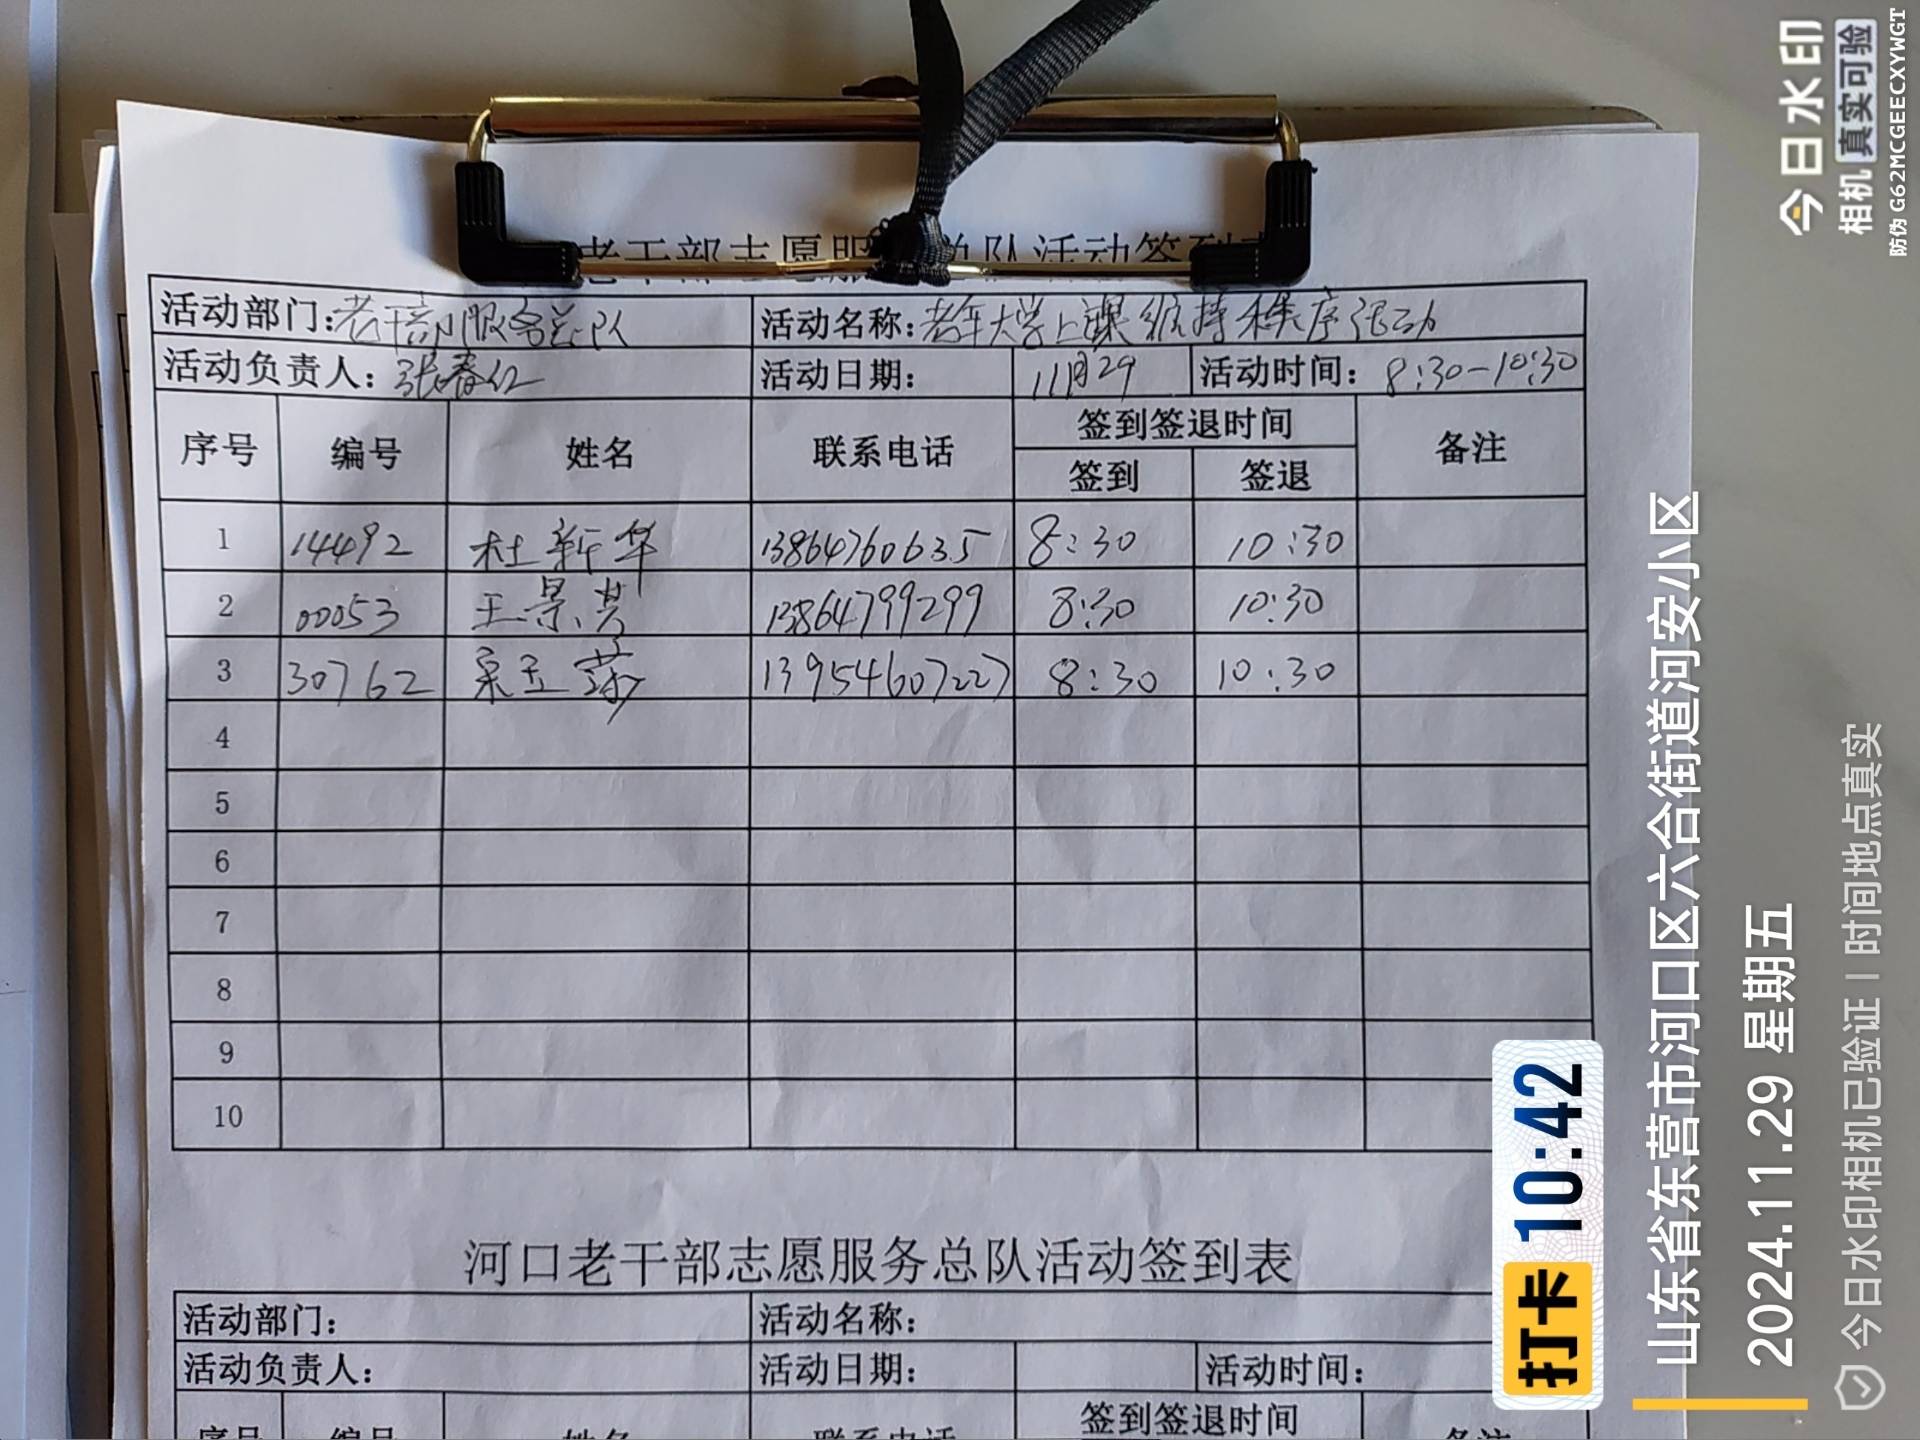 老干部志愿服务总队活动签到表
活动部门：老干部服务总队 活动名称：老年大学上课维持秩序活动
活动负责人：张春红 活动日期： 11月29 活动时间： 8:30-10:30
序号 编号 姓名 联系电话 签到签退时间 备注
签到 签退
1 14492 杜新华 13864760635 8:30 10:30
2 00053 王景芸 13864799299 8:30 10:30
3 30762 13954607227 8:30 10:30
4
5
6
7
8
9
10
河口老干部志愿服务总队活动签到表
活动部门： 活动名称：
活动负责人： 活动日期： 活动时间：
序号 编号 姓名 联系电话 签到签退时间 备注
打卡 10:42
山东省东营市河口区六合街道河安小区
2024.11.29 星期五
今日水印相机已验证 | 时间地点真实
今日水印
相机 真实可验
防伪 G62MCGEECXYWGT